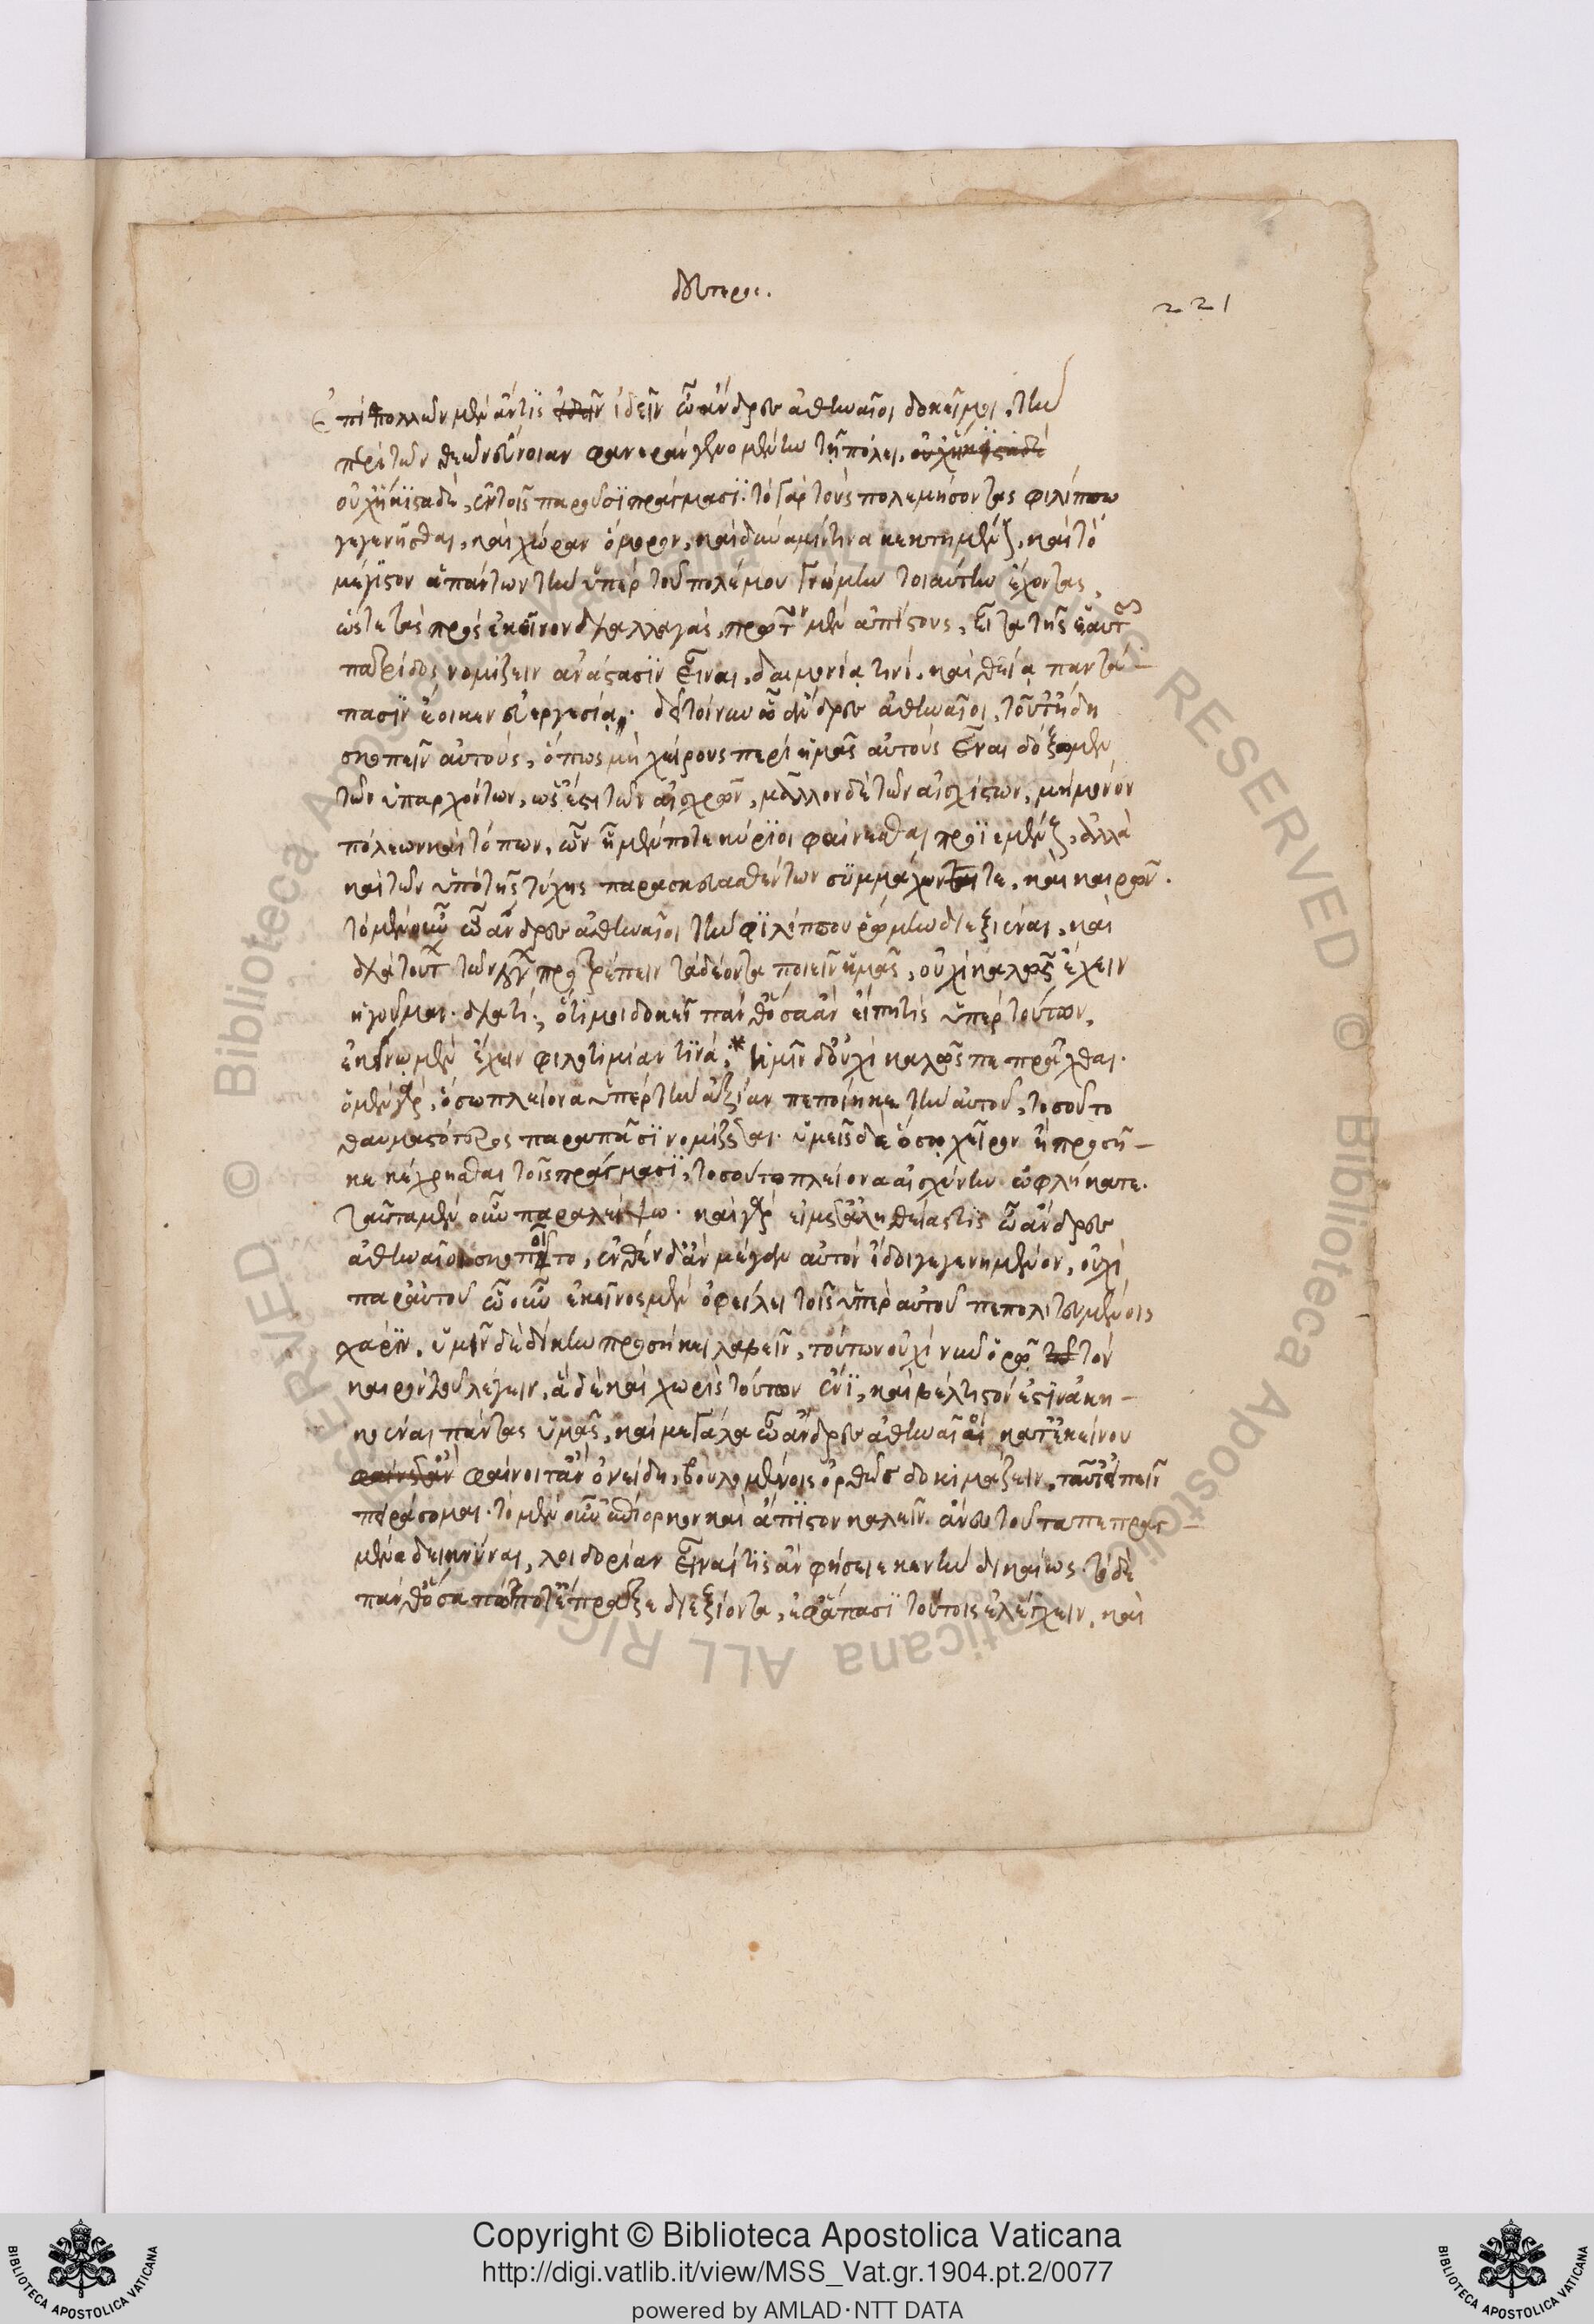 δεύτερος.
221
Ἐπὶ πολλῶν μὲν ἄν τις ἰδεῖν ὦ ἄνδρες ἀθηναῖοι δοκεῖ μοι, τὴν
περὶ τῶν θεῶν εὔνοιαν φανερὰν γενομένην τῇ πόλει, οὐχ ἥκιστα δὲ
οὐχ ἥκιστα δὲ, ἐν τοῖς παροῦσι πράγμασι· τὸ γὰρ τοὺς πολεμήσοντας φιλίππω
γεγενῆσθαι, καὶ χώραν ὅμορον, καὶ δύναμίν τινα κεκτημένους, καὶ τὸ
μέγιστον ἁπάντων τὴν ὑπὲρ τοῦ πολέμου γνώμην τοιαύτην ἔχοντας,
ὥστε τὰς πρὸς ἐκεῖνον διαλλαγὰς, πρῶτον μὲν ἀπίστους, εἶτα τῆς ἑαυτῶν
πατρίδος νομίζειν ἀνάστασιν εἶναι, δαιμονία τινὶ, καὶ θεία παντά-
πασιν ἔοικεν εὐεργεσία. δεῖ τοίνυν ὦ ἄνδρες ἀθηναῖοι, τοῦτ' ἤδη
σκοπεῖν αὐτοὺς, ὅπως μὴ χείρους περὶ ἡμᾶς αὐτοὺς εἶναι δόξωμεν
τῶν ὑπαρχόντων, ὡς ἔστι τῶν αἰσχρῶν, μᾶλλον δὲ τῶν αἰσχίστων, μὴ μόνον
πόλεων καὶ τόπων, ὧν ἦμέν ποτε κύριοι φαίνεσθαι προϊεμένους, ἀλλὰ
καὶ τῶν ὑπὸ τῆς τύχης παρασκευασθέντων συμμάχων τε, καὶ καιρῶν.
τὸ μὲν οὖν ὦ ἄνδρες ἀθηναῖοι τὴν φιλίππου ῥώμην διεξιέναι, καὶ
διὰ τούτων τῶν λόγων προτρέπειν τὰ δέοντα ποιεῖν ὑμᾶς, οὐχὶ καλῶς ἔχειν
ἡγοῦμαι. διατί; ὅτι μοι δοκεῖ πάνθ' ὅσα ἂν εἴπῃ τις ὑπὲρ τούτων,
ἐκείνω μὲν ἔχειν φιλοτιμίαν τινά, * ἡμῖν δ' οὐχὶ καλῶς πεπρᾶχθαι.
ὁ μὲν γὰρ, ὅσω πλείονα ὑπὲρ τὴν ἀξίαν πεποίηκε τὴν αὐτοῦ, τοσοῦτο
θαυμαστότερος παρὰ πᾶσι νομίζεται. ὑμεῖς δὲ ὅσῳ χεῖρον ἢ προσῆ-
κε κέχρησθαι τοῖς πράγμασι, τοσούτῳ πλείονα αἰσχύνην ὠφλήκατε.
ταῦτα μὲν οὖν παραλείψω. καὶ γὰρ εἰ μετ' ἀληθείας τις ὦ ἄνδρες
ἀθηναῖοι σκοποῖτο, ἐνθένδ' ἂν μέγαν αὐτὸν ἴδοι γεγενημένον, οὐχὶ
παρ' αὑτοῦ ὧν οὖν ἐκεῖνος μὲν ὀφείλει τοῖς ὑπὲρ αὐτοῦ πεπολιτευμένοις
χάριν, ὑμῖν δὲ δίκην προσήκει λαβεῖν, τούτων οὐχὶ νῦν ὁρῶ τὸν
καιρὸν τοῦ λέγειν, ἃ δὲ καὶ χωρὶς τούτων ἔνι, καὶ βέλτιστόν ἐστιν ἀκη-
κοέναι πάντας ὑμᾶς, καὶ μεγάλα ὦ ἄνδρες ἀθηναῖοι κατ' ἐκείνου
φαίνοιτ' ἂν ὀνείδη, βουλομένοις ὀρθῶς δοκιμάζειν, ταῦτ' εἰπεῖν
πειράσομαι. τὸ μὲν οὖν ἐπίορκον καὶ ἄπιστον καλεῖν, ἄνευ τοῦ τὰ πεπραγ-
μένα δεικνύναι, λοιδορίαν εἶναί τις ἂν φήσειε κενὴν δικαίως· τὸ δὲ
πάνθ' ὅσα πώποτ' ἔπραξε διεξιόντα, ἐφ' ἅπασι τούτοις ἐλέγχειν, καὶ
Copyright © Biblioteca Apostolica Vaticana
http://digi.vatlib.it/view/MSS_Vat.gr.1904.pt.2/0077
powered by AMLAD·NTT DATA